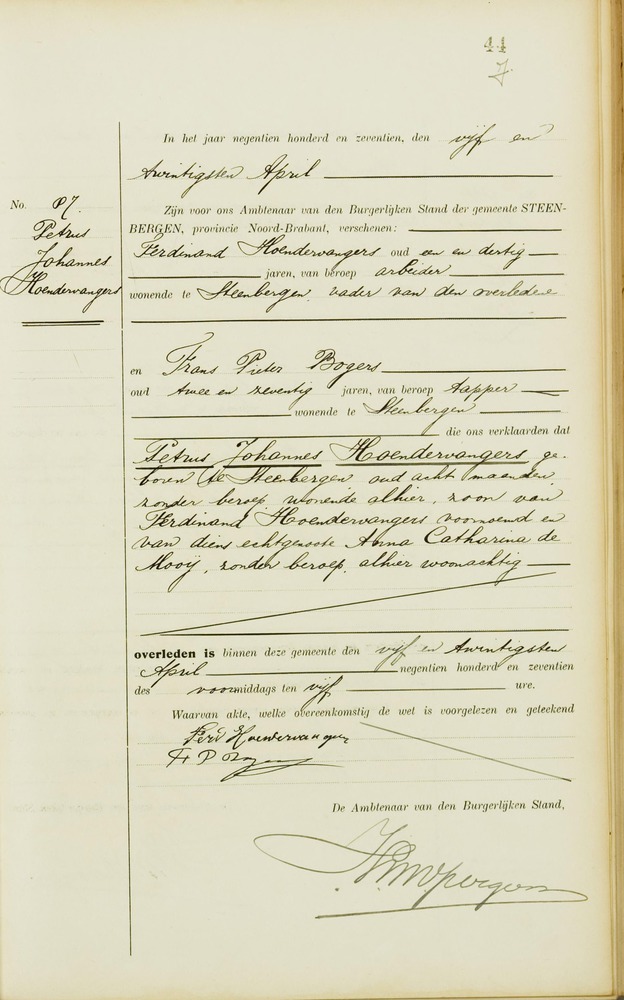 44
In het jaar negentien honderd en zeventien, den vijf en
twintigsten April
No. 87.
Petrus
Johannes
Hoendervangers
Zijn voor ons Ambtenaar van den Burgerlijken Stand der gemeente STEEN-
BERGEN, provincie Noord-Brabant, verschenen:
Ferdinand Hoendervangers oud een en dertig
jaren, van beroep arbeider
wonende te Steenbergen, vader van den overledene
en Frans Pieter Bogers
oud twee en zeventig jaren, van beroep tapper
wonende te Steenbergen
die ons verklaarden dat
Petrus Johannes Hoendervangers ge-
boren te Steenbergen, oud acht maanden,
zonder beroep, wonende alhier, zoon van
Ferdinand Hoendervangers voornoemd en
van diens echtgenoote Anna Catharina de
Mooij, zonder beroep, alhier woonachtig
overleden is binnen deze gemeente den vijf en twintigsten
April negentien honderd en zeventien
des voormiddags ten vijf ure.
Waarvan akte, welke overeenkomstig de wet is voorgelezen en geteekend
Ferd Hoendervangers
Fr P Bogers
De Ambtenaar van den Burgerlijken Stand,